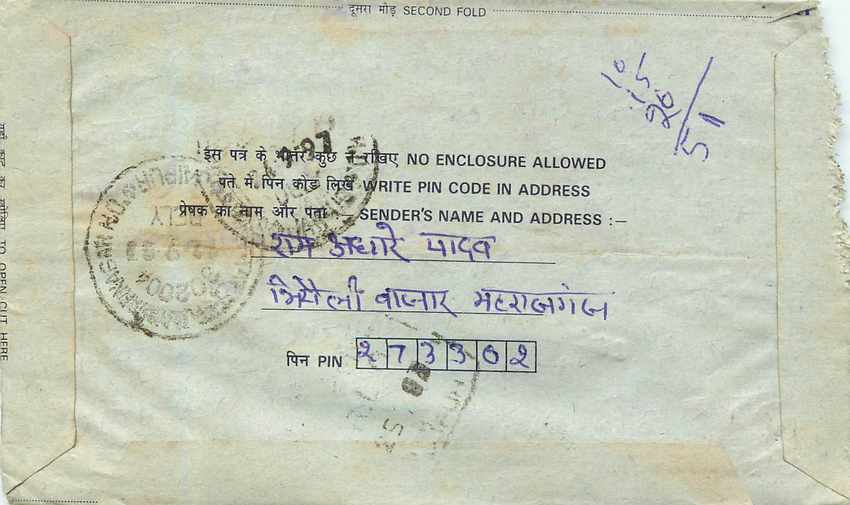 दूसरा मोड़ SECOND FOLD
51
इस पत्र के भीतर कुछ न रखिए NO ENCLOSURE ALLOWED
पते में पिन कोड लिखें WRITE PIN CODE IN ADDRESS
प्रेषक का नाम और पता SENDER'S NAME AND ADDRESS :—
राम अधारे यादव
भिसौली बाजार महराजगंज
पिन PIN २७३३०२
TO OPEN CUT HERE